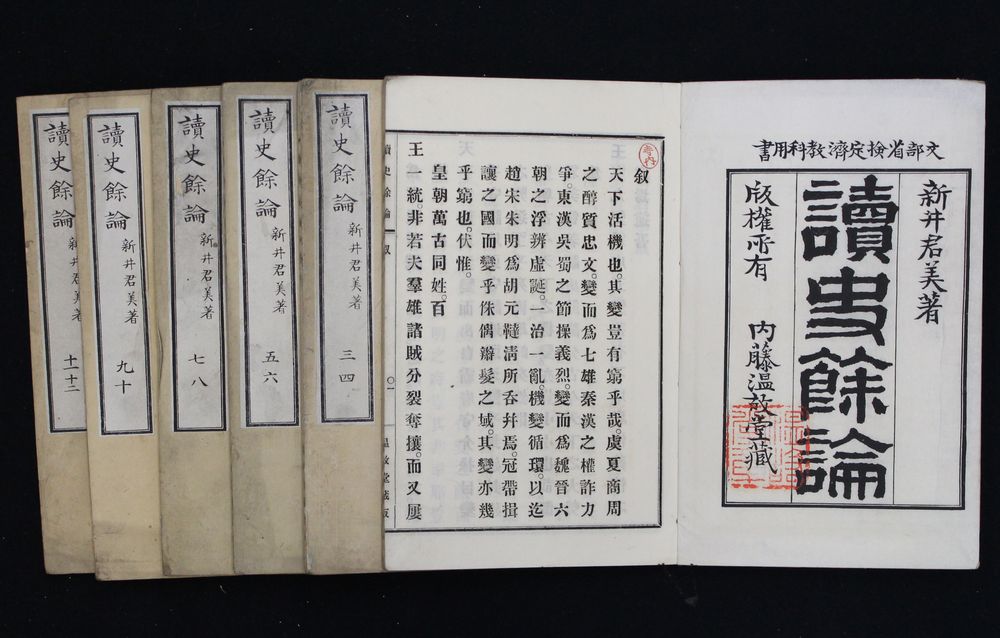 文部省檢定濟教科用書
新井君美著
讀史餘論
版權所有 内藤温故堂藏
叙
天下活機也。其變豈有窮乎哉。虞夏商周
之醇質忠文。變而爲七雄秦漢之權詐力
爭。東漢吳蜀之節操義烈。變而爲魏晉六
朝之浮辨虛誕。一治一亂。機變循環。以迄
趙宋朱明爲胡元韃淸所呑幷焉。冠帶揖
讓之國而變乎侏偶辮髮之域。其變亦幾
乎窮也。伏惟。
皇朝萬古同姓。百
王一統非若夫羣雄諸賊分裂奪攘。而又屢
讀史餘論 叙 〇一 温故堂藏版
讀史餘論 新井君美著 三四
讀史餘論 新井君美著 五六
讀史餘論 新井君美著 七八
讀史餘論 新井君美著 九十
讀史餘論 新井君美著 十一十二